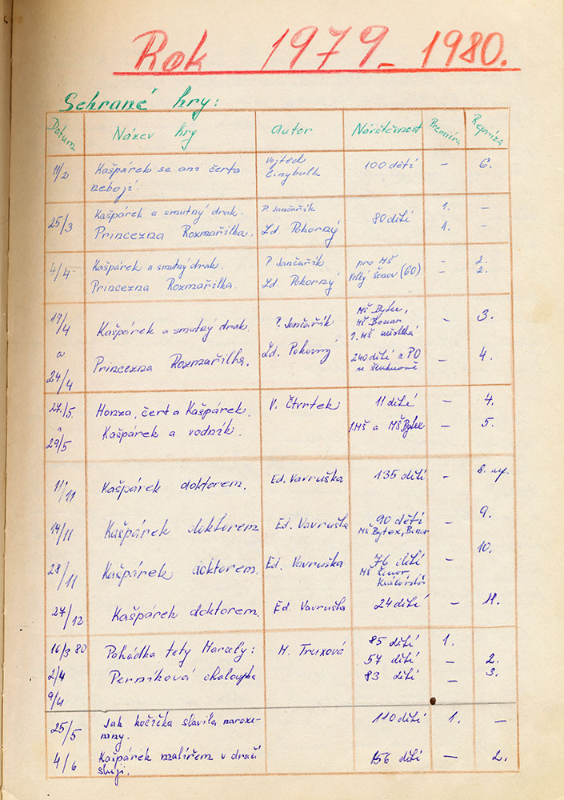 Rok 1979-1980.
Sehrané hry:
Datum Název hry autor Návštěvnost Premiéra Repríza
11/2 Kašpárek se ani čerta nebojí. Vojtěch Cinybulk 100 dětí – 6.
25/3 Kašpárek a smutný drak. P. Jančařík 80 dětí 1. –
Princezna Rozmařilka. Ld. Pokorný 1. –
4/4 Kašpárek a smutný drak. P. Jančařík pro MŠ – 2.
Princezna Rozmařilka. Ld. Pokorný Velký Šenov (60) – 2.
17/4 Kašpárek a smutný drak. P. Jančařík MŠ Bytex, MŠ Benar, 1. MŠ – 3.
a
24/4 Princezna Rozmařilka. Ld. Pokorný 240 dětí a PO – 4.
27/5. Honza, čert a Kašpárek. V. Čtvrtek 11 dětí – 4.
a
29/5 Kašpárek a vodník. 1MŠ a MŠ Bytex – 5.
11/11 Kašpárek doktorem. Ed. Vavruška 135 dětí – 8.
14/11 Kašpárek doktorem Ed. Vavruška 90 dětí – 9.
MŠ Bytex, Benar
28/11 Kašpárek doktorem. Ed. Vavruška 76 dětí – 10.
MŠ Šenov
27/12 Kašpárek doktorem. Ed Vavruška 24 dětí – 11.
16/3 80 Pohádka tety Marcely: M. Truxová 85 dětí 1.
2/4 Perníková chaloupka 57 dětí – 2.
9/4 83 dětí – 3.
25/5 Jak kočička slavila narozeniny. 110 dětí 1. –
4/6 Kašpárek malířem v dračí sluji. 156 dětí – 2.